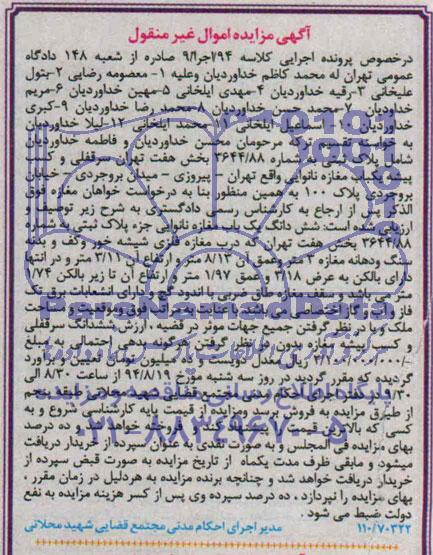 آگهی مزایده اموال غیر منقول
درخصوص پرونده اجرایی کلاسه ۹۴/اجرا/۹ صادره از شعبه ۱۴۸ دادگاه
عمومی تهران له محمد کاظم خداوردیان وعلیه ۱- معصومه رضایی ۲-بتول
علیخانی ۳-رقیه خداوردیان ۴-مهدی ایلخانی ۵-مهین خداوردیان ۶-مریم
خداوردیان ۷-محمد حسن خداوردیان ۸-محمد رضا خداوردیان ۹-کبری
خداوردیان ۱۰- اسماعیل ایلخانی ۱۱- محمد ایلخانی ۱۲-لیلا خداوردیان
به خواسته تقسیم ترکه مرحومان محسن خداوردیان و فاطمه خداوردیان
شامل پلاک ثبتی به شماره ۳۶۴۴/۸۸ بخش هفت تهران سرقفلی و کسب
پیشه یکباب مغازه نانوایی واقع تهران - پیروزی - میدان بروجردی - خیابان
بروجردی پلاک ۱۰۰ به همین منظور بنا به درخواست خواهان مغازه فوق
الذکر پس از ارجاع به کارشناس رسمی دادگستری به شرح زیر توصیف و
ارزیابی شده است: شش دانگ یک باب مغازه نانوایی جزء پلاک ثبتی به شماره
۳۶۴۴/۸۸ بخش هفت تهران که درب مغازه فلزی شیشه خور وکف و بدنه
سنگ ودهانه مغازه ۳ متر وعمق آن ۸/۱۳ متر و ارتفاع آن ۳/۱۱ متر و در انتها
دارای بالکن به عرض ۳/۱۸ و عمق ۱/۹۷ متر و ارتفاع آن تا زیر بالکن ۱/۷۴
متر می باشد و سقف مغازه طاق ضربی با اندود گچ و دارای انشعابات برق تک
فاز وآب و گاز اختصاصی می باشد با عنایت به مراتب فوق وموقعیت و مساحت
ملک و با در نظر گرفتن جمیع جهات موثر در قضیه ، ارزش ششدانگ سرقفلی
و کسب پیشه مغازه بدون در نظر گرفتن هرگونه بدهی احتمالی به مبلغ
ریال معادل دویست و میلیون تومان تعیین و برآورد
گردیده که مقرر گردید در روز سه شنبه مورخ ۹۴/۸/۱۹ از ساعت ۸/۳۰ الی
۹/۳۰ در محل اجرای احکام مدنی مجتمع قضایی شهید محلاتی طبقه پنجم
از طریق مزایده به فروش برسد ومزایده از قیمت پایه کارشناسی شروع و به
کسی که بالاترین قیمت را پیشنهاد کند ، فروخته خواهد شد و ده درصد
بهای مزایده فی المجلس و به صورت نقدی به عنوان سپرده از خریدار دریافت
میشود و مابقی ظرف مدت یکماه از تاریخ مزایده به صورت قبض سپرده از
خریدار دریافت خواهد شد و چنانچه برنده مزایده به هردلیل در زمان مقرر ،
بهای مزایده را نپردازد ، ده درصد سپرده وی پس از کسر هزینه مزایده به نفع
دولت ضبط می شود .
۱۱۰/۷۰۳۲۲ مدیر اجرای احکام مدنی مجتمع قضایی شهید محلاتی
پایگاه اطلاع رسانی مناقصه و مزایده
۰۲۱-۸۸۳۴۹۶۷۰-۵